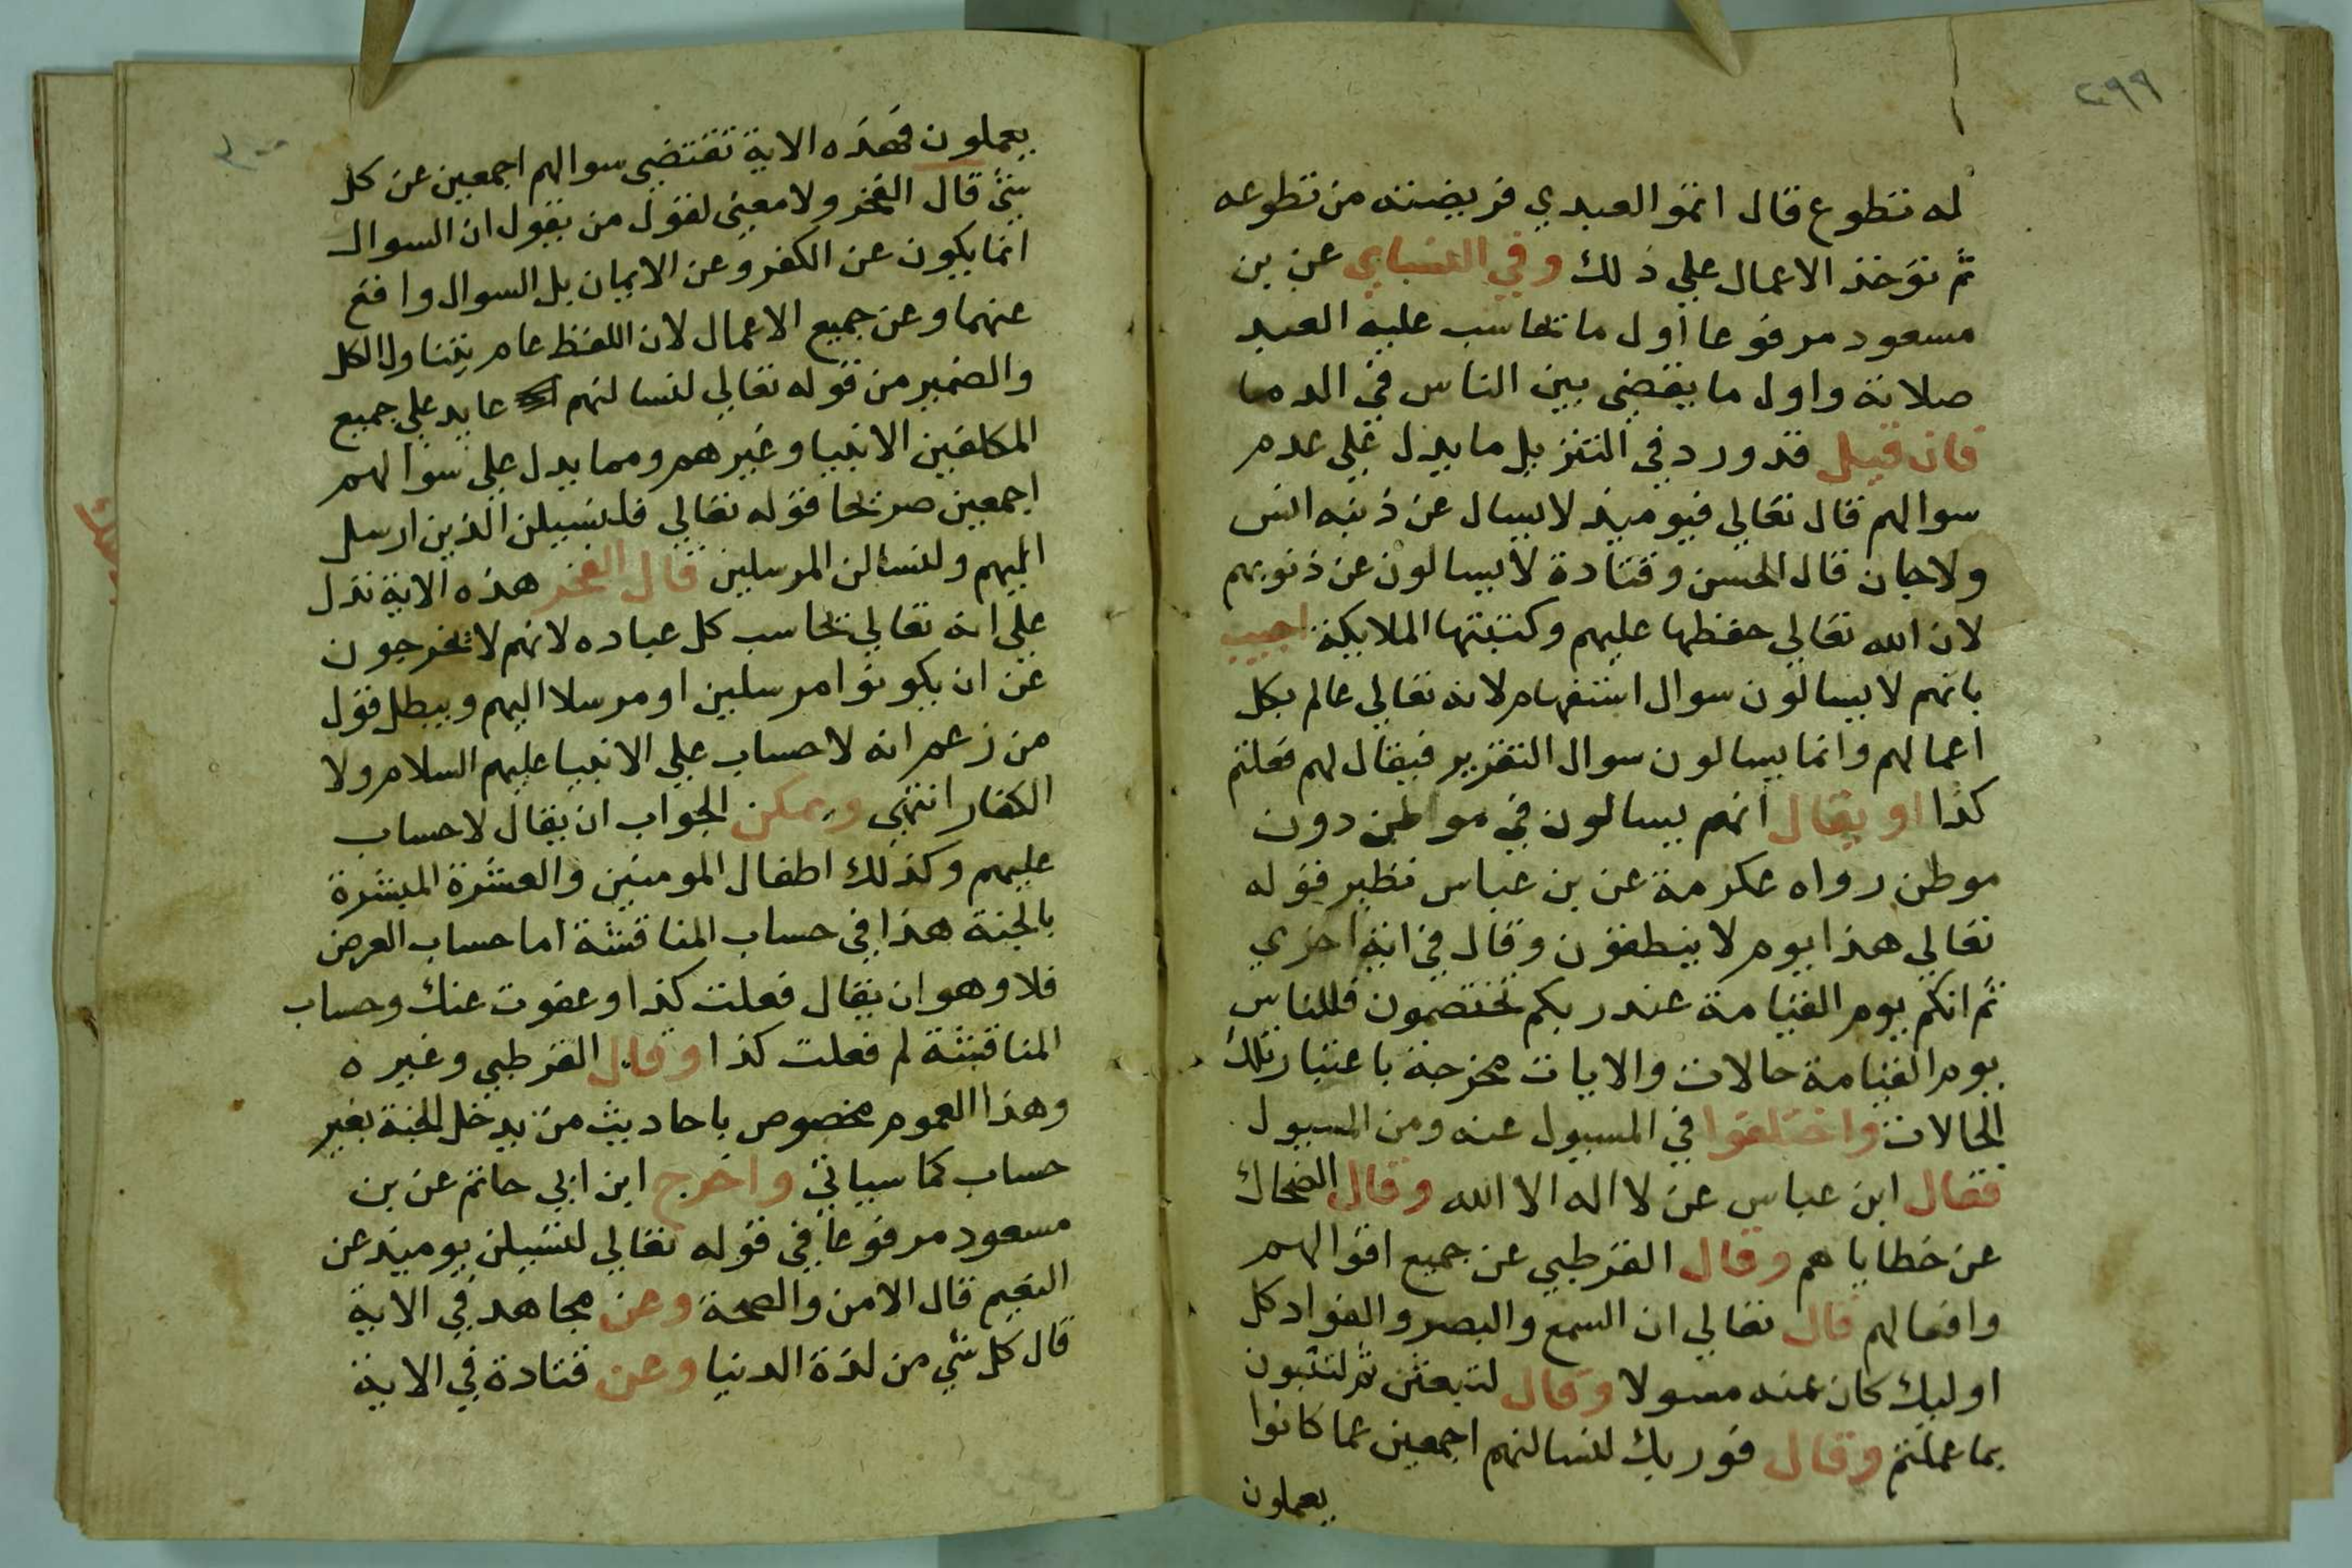 ٢٩٩
له تطوع قال اتمو العبدي فريضته من تطوعه
ثم توخذ الاعمال علي ذلك وفي النسايي عن بن
مسعود مرفوعا اول ما يحاسب عليه العبد
صلاته واول ما يقضي بين الناس في الدما
فان قيل قد ورد في التنزيل ما يدل علي عدم
سوالهم قال تعالي فيوميذ لا يسال عن ذنبه انس
ولا جان قال الحسن وقتادة لا يسالون عن ذنوبهم
لان الله تعالي حفظها عليهم وكتبتها الملايكة اجيب
بانهم لا يسالون سوال استفهام لانه تعالي عالم بكل
اعمالهم وانما يسالون سوال التقرير فيقال لهم فعلتم
كذا او يقال انهم يسالون في مواطن دون
موطن رواه عكرمة عن بن عباس نظير قوله
تعالي هذا يوم لا ينطقون وقال في اية اخري
ثم انكم يوم القيامة عند ربكم تختصمون فللناس
يوم القيامة حالات والايات مخرجة باعتبار تلك
الحالات واختلفوا في المسيول عنه ومن المسيول
فقال ابن عباس عن لا اله الا الله وقال الضحاك
عن خطاياهم وقال القرطبي عن جميع اقوالهم
وافعالهم قال تعالي ان السمع والبصر والفواد كل
اوليك كان عنه مسولا وقال لتبعثن ثم لتنبون
بما عملتم وقال فوربك لنسالنهم اجمعين عما كانوا
يعملون
يعملون فهذه الاية تقتضي سوالهم اجمعين عن كل
شي قال الفخر ولا معني لقول من يقول ان السوال
انما يكون عن الكفر وعن الايمان بل السوال واقع
عنهما وعن جميع الاعمال لان اللفظ عام يتناول الكل
والضمير من قوله تعالي لنسالنهم عايد علي جميع
المكلفين الانبيا وغيرهم ومما يدل علي سوالهم
اجمعين صريحا قوله تعالي فلنسيلن الذين ارسل
اليهم ولنسالن المرسلين قال الفخر هذه الاية تدل
علي انه تعالي يحاسب كل عباده لانهم لا يخرجون
عن ان يكونوا مرسلين او مرسلا اليهم ويبطل قول
من زعم انه لا حساب علي الانبيا عليهم السلام ولا
الكفار انتهي ويمكن الجواب ان يقال لا حساب
عليهم وكذلك اطفال المومنين والعشرة المبشرة
بالجنة هذا في حساب المناقشة اما حساب العرض
فلا وهو ان يقال فعلت كذا وعفوت عنك وحساب
المناقشة لم فعلت كذا وقال القرطبي وغيره
وهذا العموم مخصوص باحاديث من يدخل الجنة بغير
حساب كما سياتي واخرج ابن ابي حاتم عن بن
مسعود مرفوعا في قوله تعالي لتسيلن يوميذ عن
النعيم قال الامن والصحة وعن مجاهد في الاية
قال كل شي من لذة الدنيا وعن قتادة في الاية